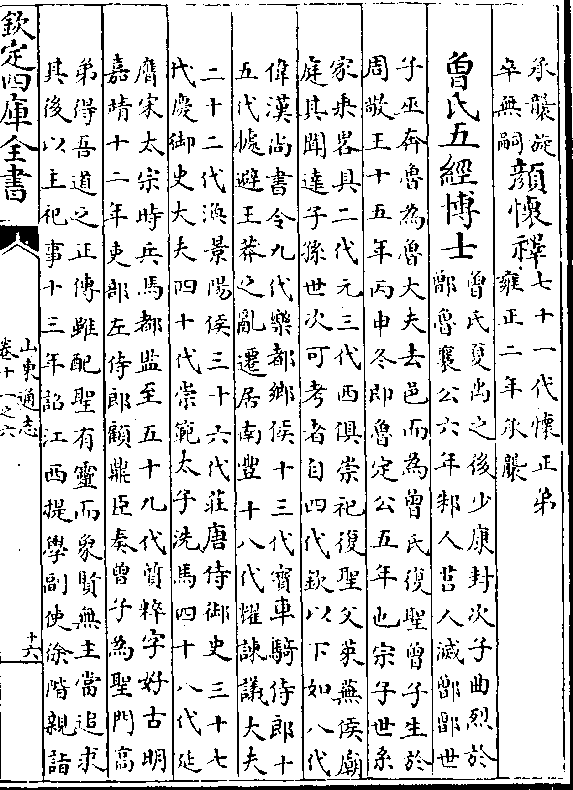 承襲旋
卒無嗣
顔懷禋
七十一代懷正弟
雍正二年承襲
曾氏五經博士
曾氏夏禹之後少康封次子曲烈於
鄫魯襄公六年邾人莒人滅鄫鄫世
子巫奔魯為魯大夫去邑而為曾氏復聖曾子生於
周敬王十五年丙申冬即魯定公五年也宗子世系
家乗畧具二代元三代西俱崇祀復聖父萊蕪侯廟
庭其聞達子孫世次可考者自四代欽以下如八代
偉漢尚書令九代樂都鄉侯十三代寳車騎侍郎十
五代據避王莽之亂遷居南豐十八代耀諫議大夫
二十二代渙景陽侯三十六代莊唐侍御史三十七
代慶御史大夫四十代崇範太子洗馬四十八代延
膺宋太宗時兵馬都監至五十九代質粹字好古明
嘉靖十二年吏部左侍郎顧鼎臣奏曾子為聖門高
弟得吾道之正傳雖配聖有靈而象賢無主當追求
其後以主祀事十三年詔江西提學副使徐階親詣
欽定四庫全書
山東通志
卷十一之六
十六